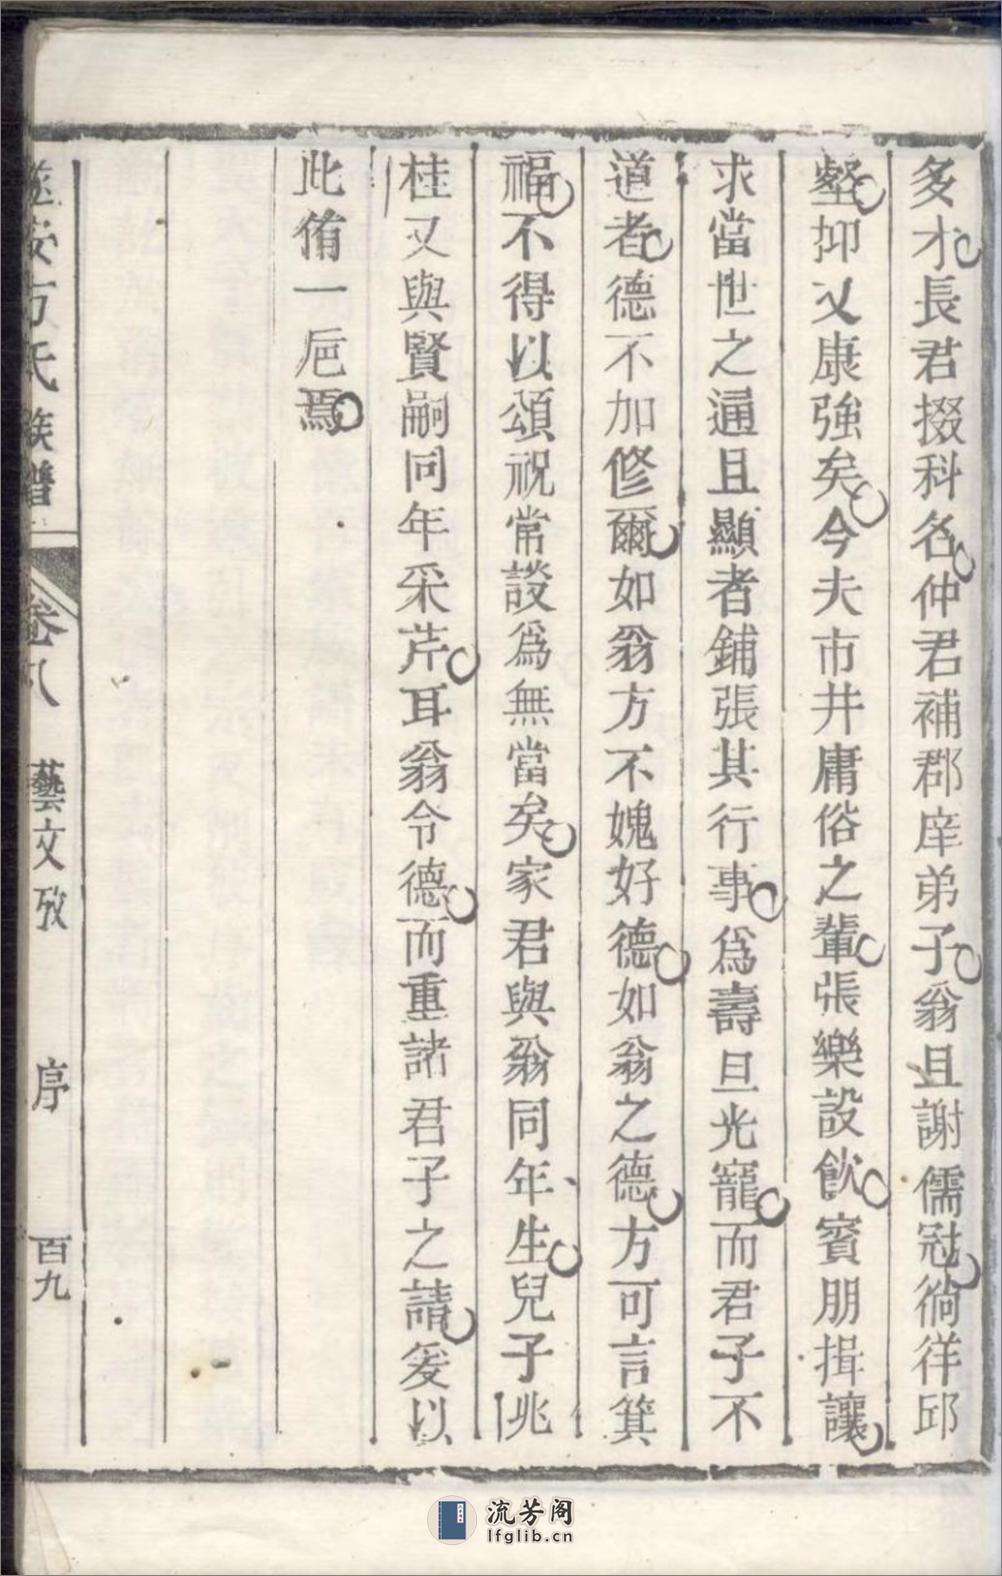 多才長君掇科名仲君補郡庠弟子翁且謝儒冠徜徉邱
壑抑又康強矣今夫市井庸俗之輩張樂設飲賓朋揖讓
求當世之通且顯者鋪張其行事爲壽旦光寵而君子不
道者德不加修爾如翁方不媿好德如翁之德方可言箕
福不得以頌祝常談爲無當矣家君與翁同年生兒子兆
桂又與賢嗣同年采芹耳翁令德而重諸君子之請爰以
此侑一巵焉
遂安方氏族譜 卷八 藝文攷 序 百九
流芳阁
lfglib.cn